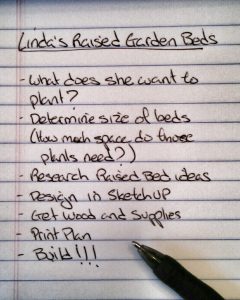 Linda's Raised Garden Beds
- What does she want to
plant?
- Determine size of beds
(How much space do those
plants need?)
- Research Raised Bed ideas
- Design in SketchUP
- Get Wood and Supplies
- Print Plan
- Build!!!